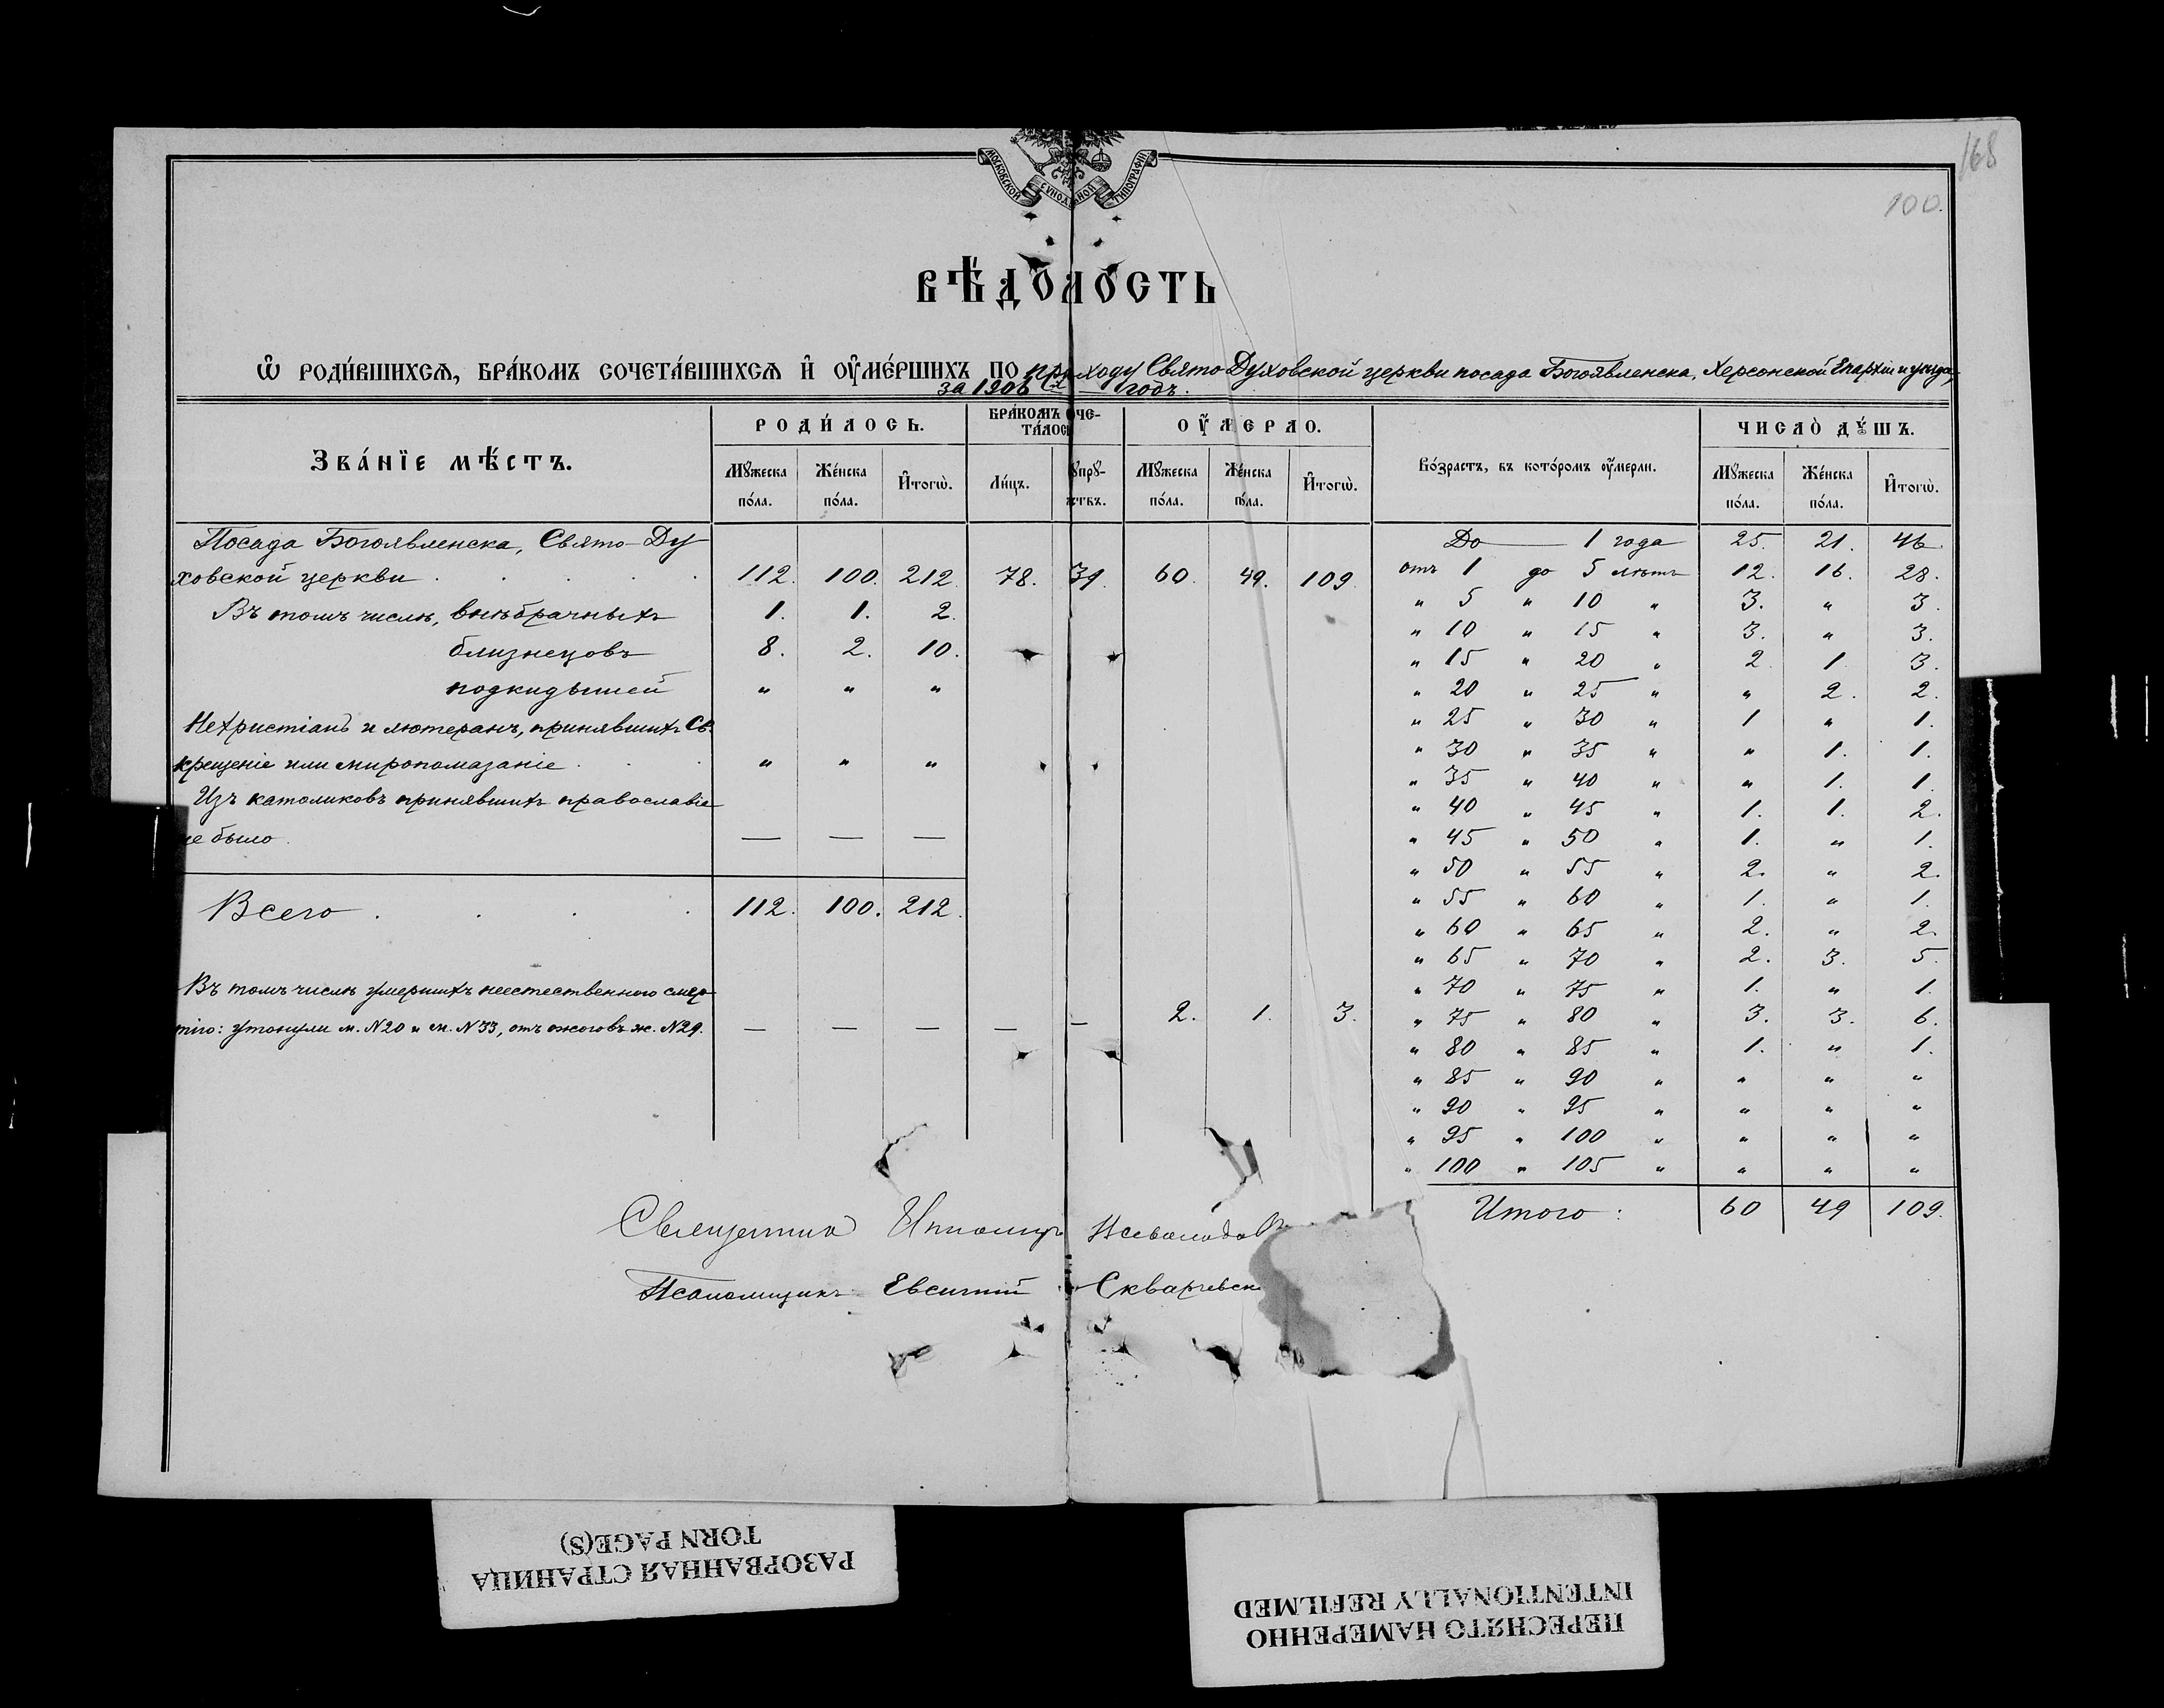 168
100.
МОСКОВСКОЙ СѴНОДАЛЬНОЙ ТИПОГРАФІИ
ВѢДОМОСТЬ
Ѡ РОДИ́ВШИХСѦ, БРА́КОМЪ СОЧЕТА́ВШИХСѦ И҆ ОУ҆МЕ́РШИХЪ ПО приходу Свято-Духовской церкви посада Богоявленска, Херсонской Епархіи и уѣзда,
за 1906й годъ.
Зва́нїе мѣ́стъ. РОДИ́ЛОСЬ. БРА́КОМЪ СОЧЕ-ТА́ЛОСЬ ОУ҆́МЕРЛО. Во́зрастъ, въ кото́ромъ оу҆́мерли. ЧИСЛО̀ ДꙊ́ШЪ.
Мꙋ́жеска по́ла. Же́нска по́ла. И҆тогѡ̀. Ли́цъ. Сꙋпрꙋ́-жствъ. Мꙋ́жеска по́ла. Же́нска по́ла. И҆тогѡ̀. Мꙋ́жеска по́ла. Же́нска по́ла. И҆тогѡ̀.
Посада Богоявленска, Свято-Ду
ховской церкви . . . . 112. 100. 212. 78. 39. 60. 49. 109.
Въ томъ числѣ, внѣбрачныхъ 1. 1. 2.
близнецовъ 8. 2. 10.
подкидышей " " "
Нехристіанъ и лютеранъ, принявшихъ Св.
крещеніе или миропомазаніе . . " " "
Изъ католиковъ принявшихъ православіе
не было. — — —
Всего . . . . 112. 100. 212.
Въ томъ числѣ умершихъ неестественною смер
тію: утонули м. N20 и м. N33, отъ ожоговъ ж. N29. — — — — — 2. 1. 3.
До — 1 года 25. 21. 46.
отъ 1 до 5 лѣтъ 12. 16. 28.
" 5 " 10 " 3. " 3.
" 10 " 15 " 3. " 3.
" 15 " 20 " 2 1 3.
" 20 " 25 " " 2. 2.
" 25 " 30 " 1 " 1.
" 30 " 35 " " 1. 1.
" 35 " 40 " " 1. 1
" 40 " 45 " 1. 1. 2.
" 45 " 50 " 1. " 1.
" 50 " 55 " 2. " 2.
" 55 " 60 " 1. " 1.
" 60 " 65 " 2. " 2.
" 65 " 70 " 2. 3. 5.
" 70 " 75 " 1. " 1.
" 75 " 80 " 3. 3. 6.
" 80 " 85 " 1. " 1.
" 85 " 90 " " " "
" 90 " 95 " " " "
" 95 " 100 " " " "
" 100 " 105 " " " "
Итого: 60 49 109.
Священникъ
Псаломщикъ Евсигній Скварчевск
РАЗОРВАННАЯ СТРАНИЦА
TORN PAGE(S)
ПЕРЕСНЯТО НАМЕРЕННО
INTENTIONALLY REFILMED